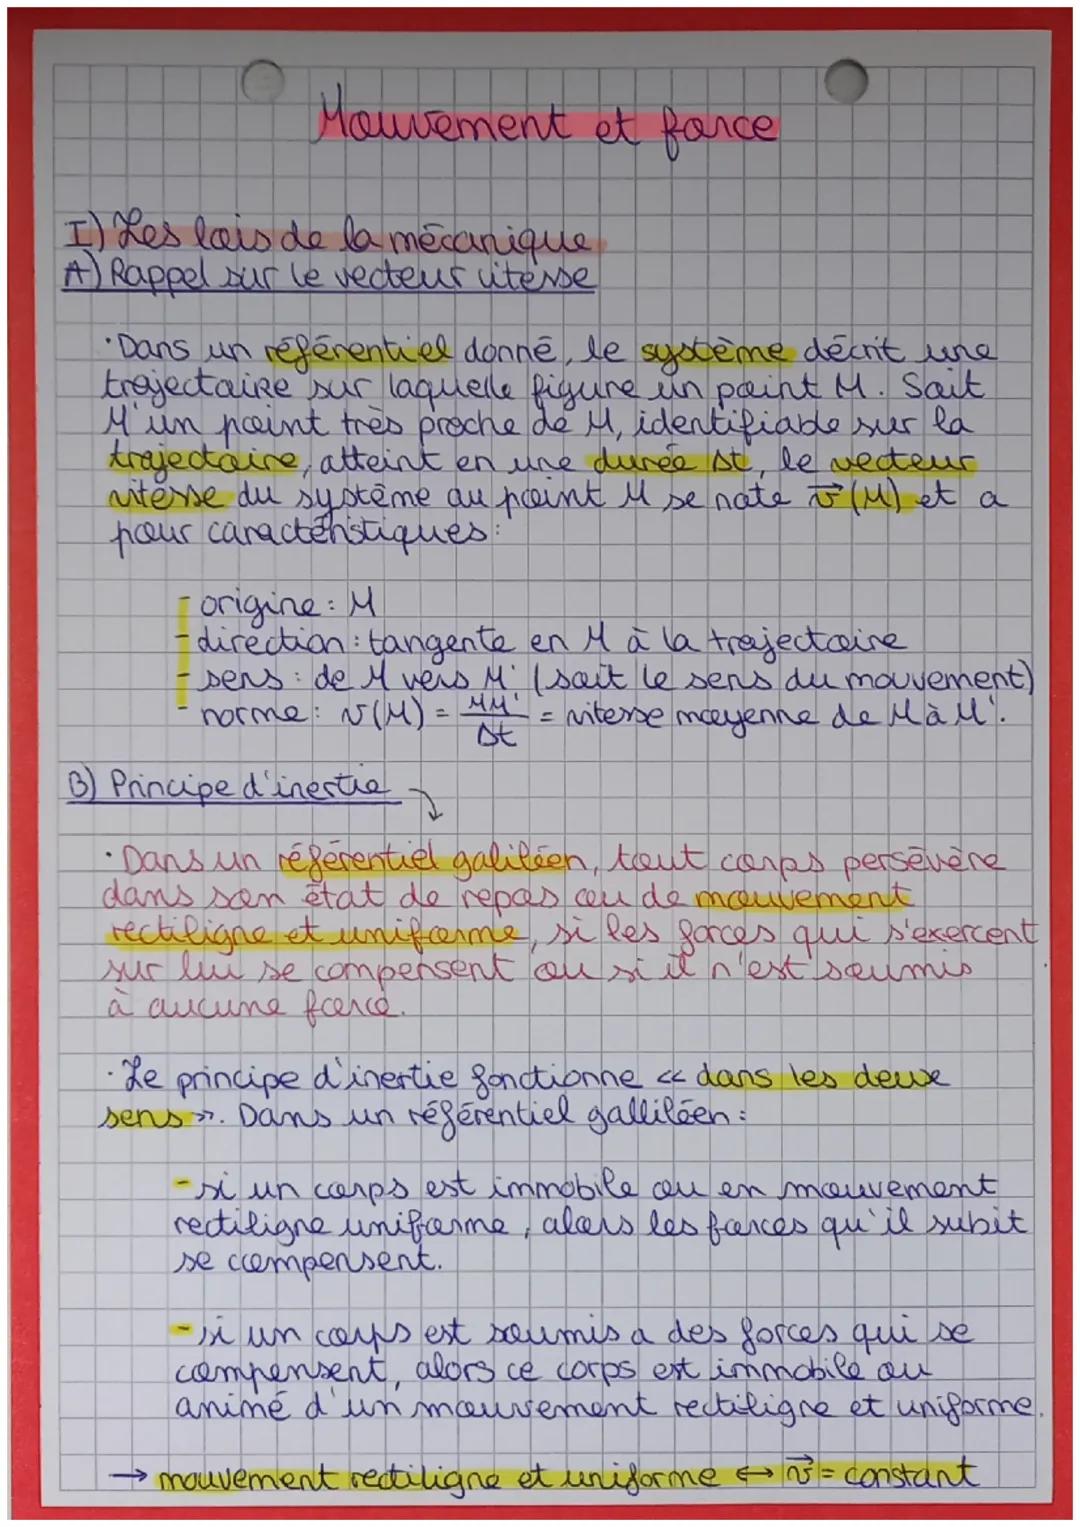 Mouvement et force
I) Les lois de la mécanique
A) Rappel sur le vecteur vitesse
• Dans un référentiel donné, le système décrit une
trajectoire sur laquelle figure un point M. Soit
M' un point très proche de M, identifiable sur la
trajectoire, atteint en une durée Δt, le vecteur
vitesse du système au point M se note v⃗(M) et a
pour caractéristiques :
- origine : M
- direction : tangente en M à la trajectoire
- sens : de M vers M' (soit le sens du mouvement)
- norme : v(M) = MM'/Δt = vitesse moyenne de M à M'.
B) Principe d'inertie
• Dans un référentiel galiléen, tout corps persévère
dans son état de repos ou de mouvement
rectiligne et uniforme, si les forces qui s'exercent
sur lui se compensent ou si il n'est soumis
à aucune force.
• Le principe d'inertie fonctionne << dans les deux
sens >>. Dans un référentiel galliléen :
- si un corps est immobile ou en mouvement
rectiligne uniforme, alors les forces qu'il subit
se compensent.
- si un corps est soumis a des forces qui se
compensent, alors ce corps est immobile ou
animé d'un mouvement rectiligne et uniforme.
→ mouvement rectiligne et uniforme ↔ v⃗ = constant